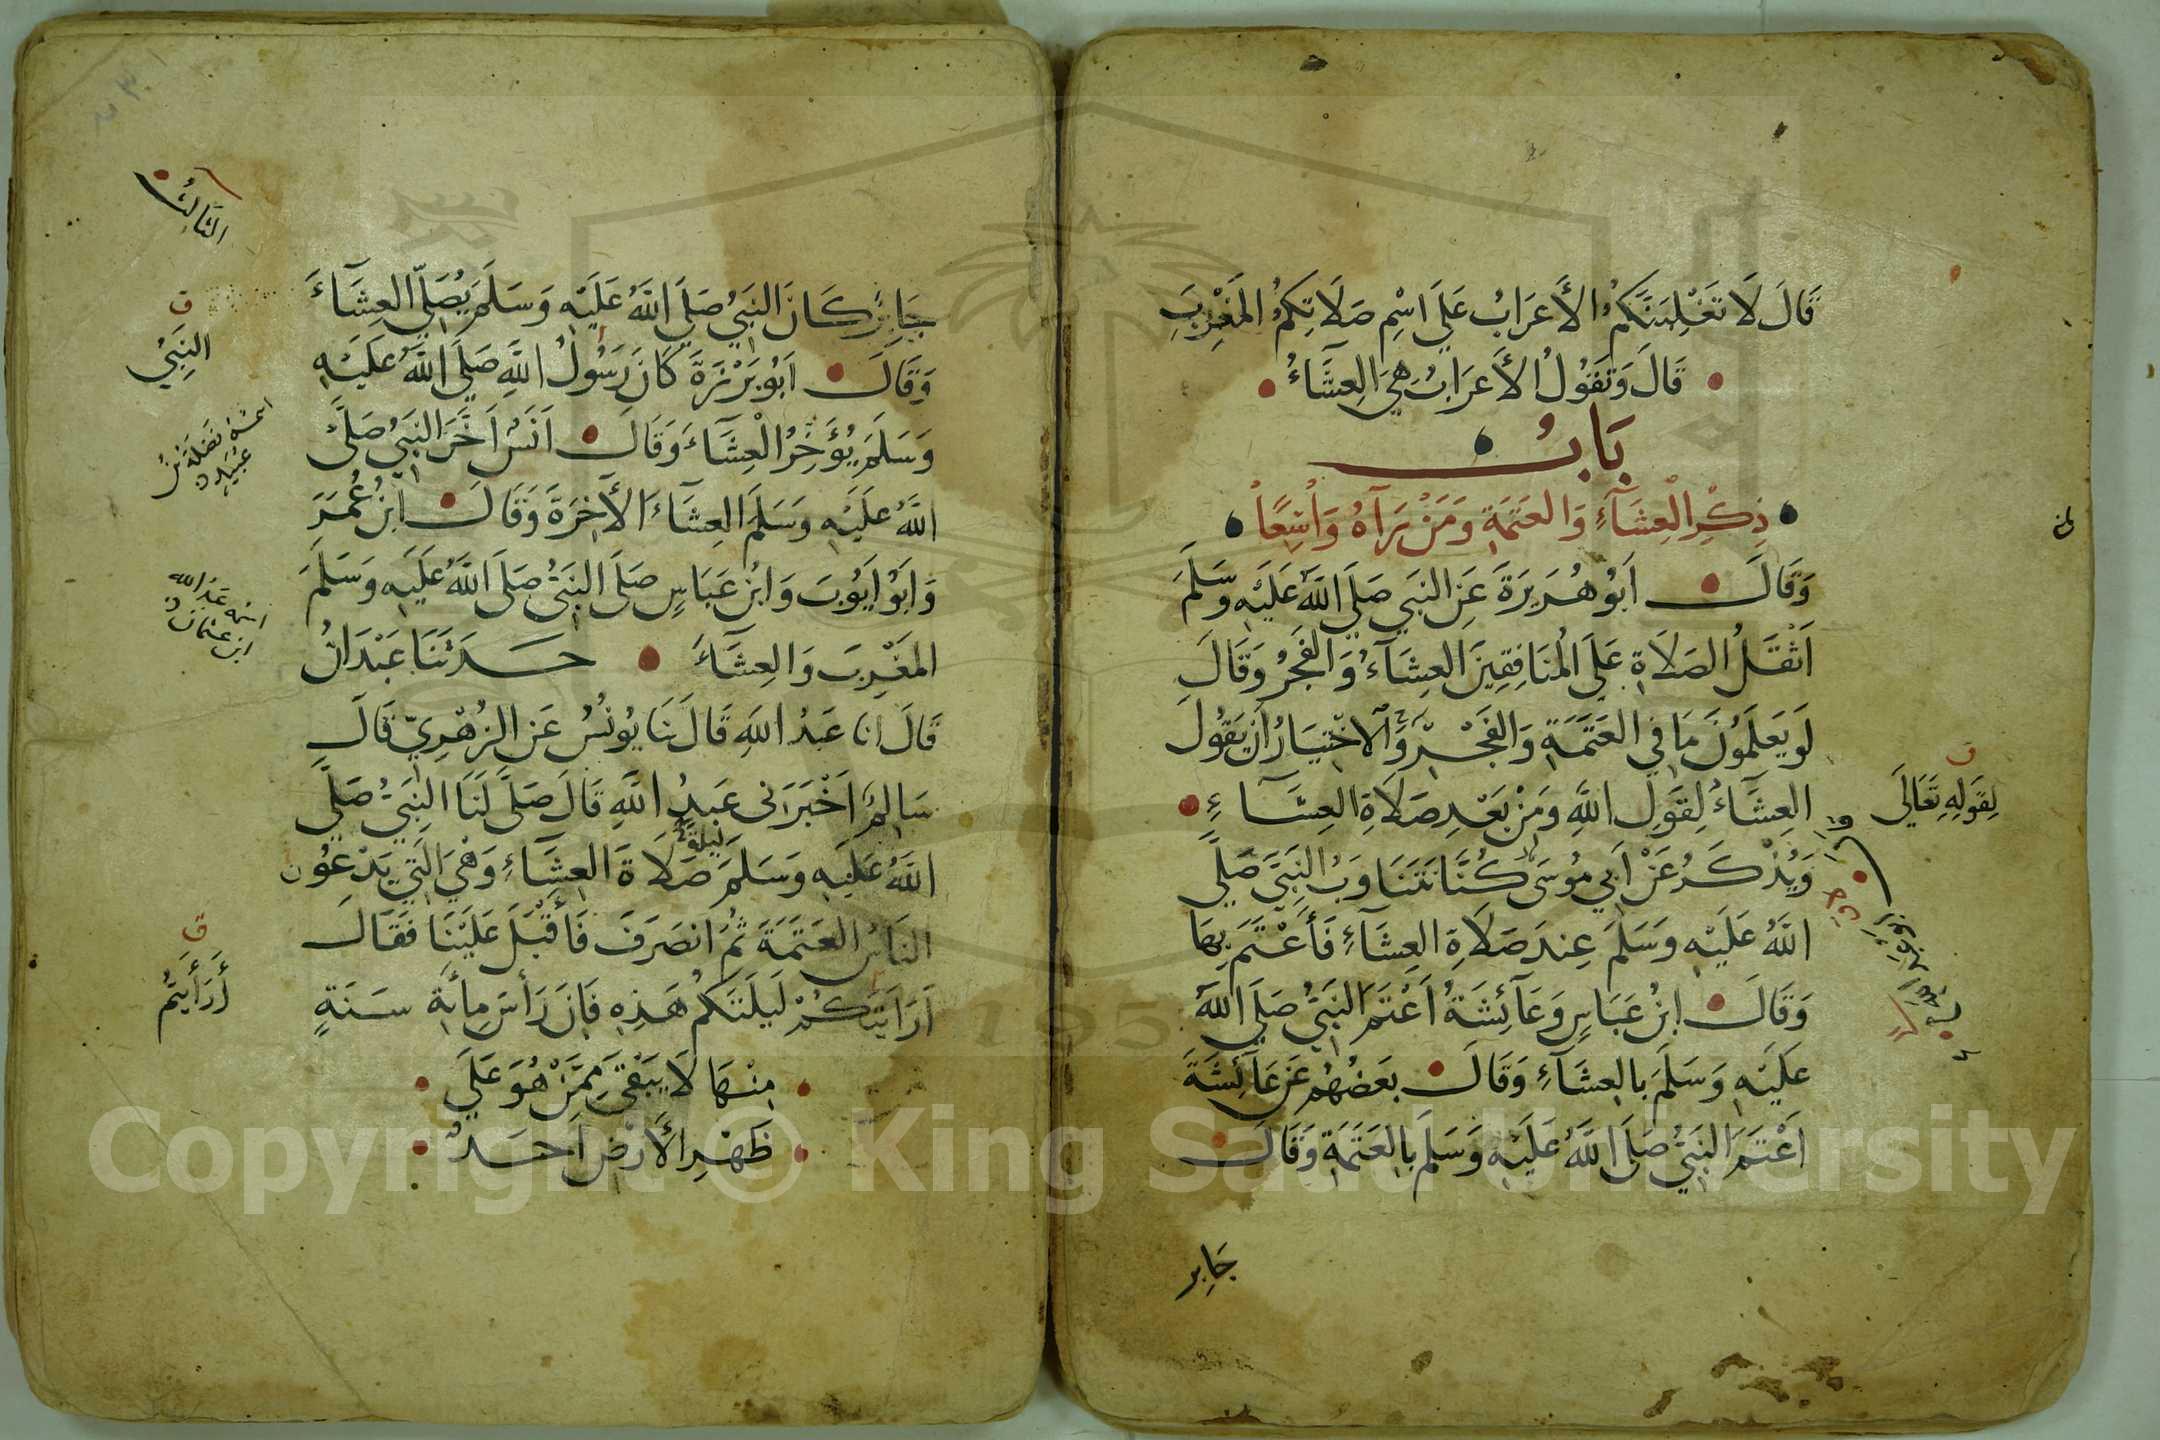 قَالَ لَا تَغْلِبَنَّكُمُ الأَعْرَابُ عَلَى اسْمِ صَلَاتِكُمُ المَغْرِبِ
قَالَ وَتَقُولُ الأَعْرَابُ هِيَ العِشَاءُ
بَابُ
ذِكْرِ الْعِشَآءِ وَالعَتَمَةِ وَمَنْ يَرَآهُ وَاسِعًا
وَقَالَ اَبُو هُرَيرَةَ عَنِ النَّبِي صَلَى اللَّهُ عَلَيْهِ وَسَلَمَ
اَثْقَلُ الصَلَاةِ عَلَى المُنَافِقِينَ العِشَآءُ وَالفَجْرُ وَقَالَ
لَو يَعلَمُونَ مَا فِي العَتَمَةِ وَالفَجْرِ وَالاخْتِيَارُ اَن يَقُولَ
العِشَآءُ لِقَولِ اللَّهِ وَمَنْ بَعْدِ صَلَاةِ العِشَآءِ
وَيُذْكَرُ عَنْ اَبِي مُوسَى كُنَّا نَتَنَاوَبُ النَّبِيَّ صَلَى
اللَّهُ عَلَيْهِ وَسَلَمَ عِندَ صَلَاةِ العِشَآءِ فَأَعْتَمَ بِهَا
وَقَالَ ابْنُ عَبَاسٍ وَعَآئِشَةُ اَعْتَمَ النَّبِيُّ صَلَى اللَّهُ
عَلَيْهِ وَسَلَمَ بِالعِشَآءِ وَقَالَ بَعْضُهُم عَن عَآئِشَةَ
اَعْتَمَ النَّبِيُّ صَلَى اللَّهُ عَلَيْهِ وَسَلَمَ بِالعَتَمَةِ وَقَالَ
جَابِر
لِقَولِهِ تَعَالَى
جَابِرٌ كَانَ النَّبِيُ صَلَى اللَّهُ عَلَيْهِ وَسَلَمَ يُصَلِّي العِشَآءَ
وَقَالَ اَبُو بَرْزَةَ كَانَ رَسُولُ اللَّهِ صَلَى اللَّهُ عَلَيْهِ
وَسَلَمَ يُؤَخِّرُ الْعِشَآءَ وَقَالَ اَنَسٌ اَخَّرَ النَّبِيُ صَلَى
اللَّهُ عَلَيْهِ وَسَلَمَ العِشَآءَ الأَخِرَةَ وَقَالَ ابْنُ عُمَرَ
وَاَبُو اَيُوبَ وَابْنُ عَبَاسٍ صَلَى النَّبِيُّ صَلَى اللَّهُ عَلَيْهِ وَسَلَمَ
المَغْرِبَ وَالعِشَآءَ حَدَثَنَا عَبْدَانُ
قَالَ اَنَا عَبْدُ اللَّهِ قَالَ نَا يُونُسُ عَنِ الزُهْرِيِّ قَالَ
سَالِمٌ اَخْبَرَنِي عَبدُ اللَّهِ قَالَ صَلَى لَنَا النَّبِيُّ صَلَى
اللَّهُ عَلَيْهِ وَسَلَمَ لَيلَةً صَلَاةَ العِشَآءِ وَهْيَ الَّتِي يَدْعُون
النَاسُ العَتَمَةَ ثُمَّ انْصَرَفَ فَأَقْبَلَ عَلَيْنَا فَقَالَ
اَرَاَيْتَكُمْ لَيلَتَكُمْ هَذِهِ فَاِنَ رَأسَ مِائَةِ سَنَةٍ
مِنْهَا لَا يَبْقَى مِمَّنْ هُوَ عَلَى
ظَهْرِ الأَرْضِ اَحَدٌ
الثَالِثُ
ن
النَّبِيُّ
اسمُه نَضلَةُ بْنُ
عُبَيدٍ
اسمه عَبْدُ الله
ابن عثمان
ن
أَرَأَيتُم
Copyright © King Saud University
195